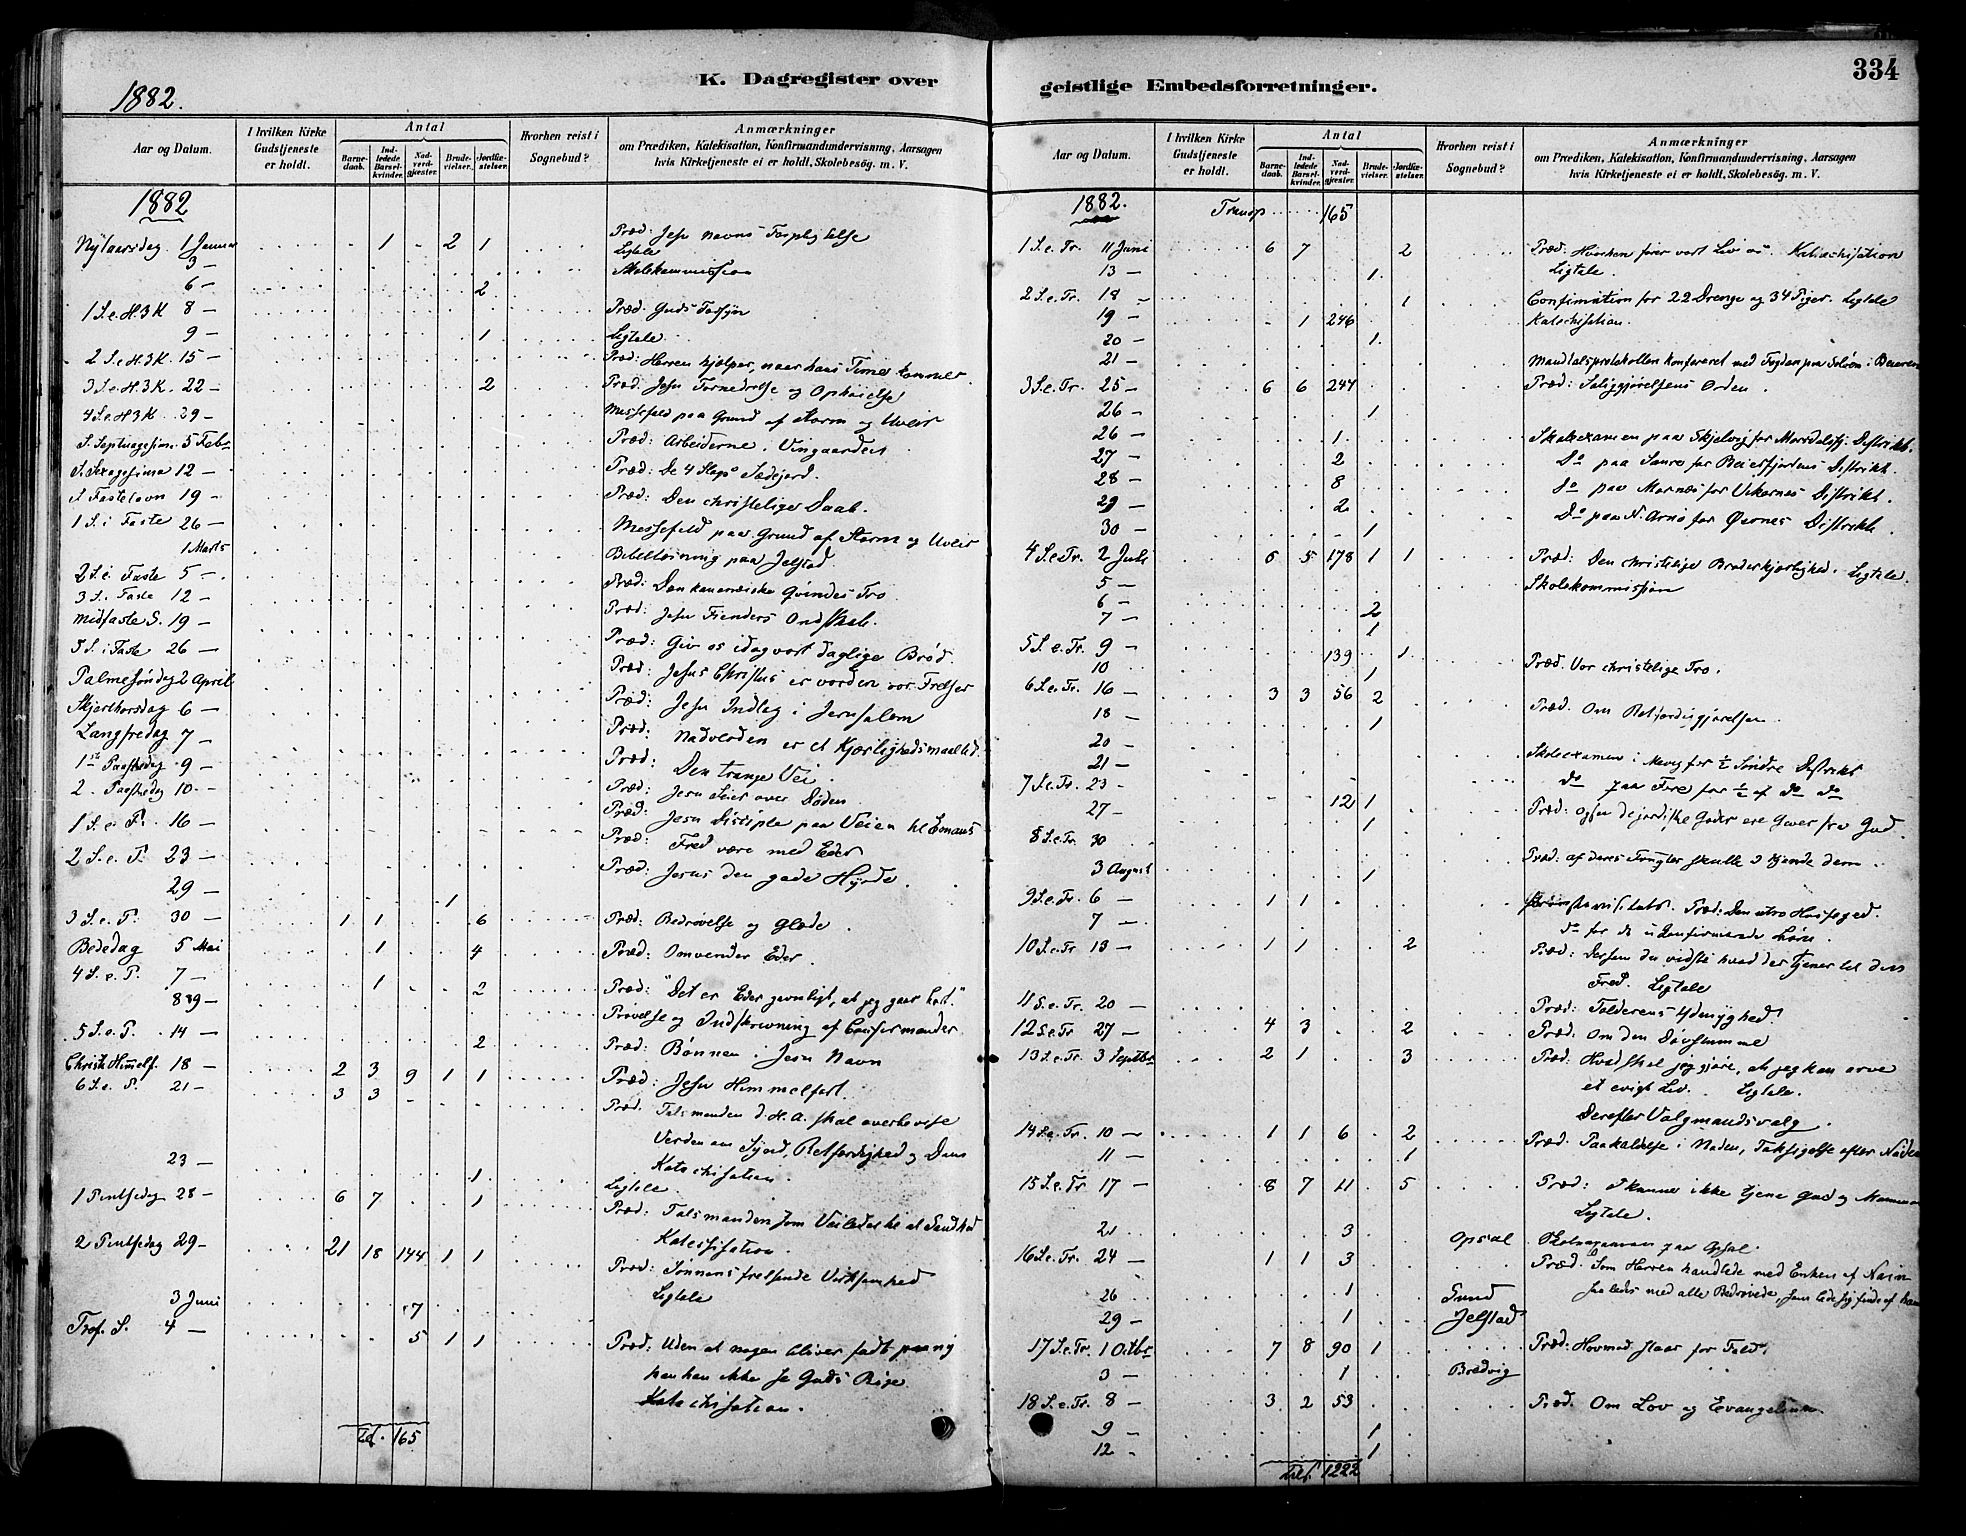 334
K. Dagregister over
1882.
Aar og Datum.
I hvilken Kirke Gudstjeneste er holdt.
Antal
Barnedaab.
Indledede Barselkvinder.
Nadverdgjæster.
Brudevielser.
Jordfæstelser.
Hvorhen reist i Sognebud?
Anmærkninger
om Prædiken, Katekisation, Konfirmandundervisning, Aarsagen
hvis Kirketjeneste ei er holdt, Skolebesøg. m. V.
1882
Nytaarsdag 1 Januar 1 - 2 1 Præd: Jesu Navns
3 — Ligtale
6 — 2 Skolekommission
1 S.e.H.3K 8 — Præd: Guds Forsyn
9 — 1 Ligtale
2 S.e.H.3K. 15 — Præd: Herren hjælper, naar hans Time kommer
3 S.e.H.3K. 22 — 2 Præd: Jesu Fornedrelse og Ophøielse
4 S.e.H.3K 29 — Messefald paa Grund af Storm og Uveir
S. Septuagesima 5 Febr Præd: Arbeiderne i Vingaarden
S. Sexagesima 12 — Præd: De 4 Slags Sædejord.
S. Fastelavn 19 — Præd: Den christelige Daab.
1 S. i Faste 26 — Messefald paa Grund af Storm og Uveir
1 Marts Bibellæsning paa Jelstad
2 S.i. Faste 5 — Præd: Den kananæiske Qvindes Tro
3 S. i Faste 12 — Præd: Jesu Fienders Ondskab.
Midfaste S. 19 — Præd: Giv os idag vort daglige Brød.
5 S. i Faste 26 — Præd: Jesus Christus er vorden vor Frelser
Palmesøndag 2 April Præd: Jesu Indtog i Jerusalem
Skjærthorsdag 6 — Præd: Nadverden er et Kjærlighedsmaaltid.
Langfredag 7 — Præd: Den trange Vei.
1ste Paaskedag 9 — Præd: Jesu Seier over Døden
2. Paaskedag 10 — Præd: Jesu Disciple paa Veien til Emaus
1 S.e.P. 16 — Præd: Fred være med Eder
2 S.e.P. 23 — Præd: Jesus den gode Hyrde.
29 — 1
3 S.e.P. 30 — 1 1 6 Præd: Bedrøvelse og Glæde.
Bededag 5 Mai 1 4 Præd: Omvender Eder.
4 S.e.P. 7 — 1 2 Præd: "Det er Eder gavnligt, at jeg gaar bort."
8 & 9 — Prøvelse og Indskrivning af Confirmander.
5 S.e.P. 14 — 2 Præd: Bønnen i Jesu Navn
Christi Himmelf. 18 — 2 3 9 1 1 Præd: Jesu Himmelfart.
6 S.e.P. 21 — 3 3 - Præd. Talsmanden d. H. A. skal overbevise
Verden om Synd, Retfærdighed og Dom
Katechisation.
23 — 1 Ligtale.
1 Pintsedag 28 — 6 7 1 Præd: Talsmanden som Veileder til al Sandhed
Katechisation.
2 Pintsedag 29 — 21 18 144 1 1 Præd: Sønnens frelsende Virksomhed
Ligtale
3 Juni 7
Tref. S. 4 — 5 1 1 Præd: Uden at nogen bliver født paa ny
kan han ikke se Guds Rige.
Katechisation.
Til. 165
geistlige Embedsforretninger.
Aar og Datum.
I hvilken Kirke Gudstjeneste er holdt.
Antal
Barnedaab.
Indledede Barselkvinder.
Nadverdgjæster.
Brudevielser.
Jordfæstelser.
Hvorhen reist i Sognebud?
Anmærkninger
om Prædiken, Katekisation, Konfirmandundervisning, Aarsagen
hvis Kirketjeneste ei er holdt, Skolebesøg. m. V.
1882. Transp 165
1 S.e.Tr. 11 Juni 6 7 2 Præd: fører vort Liv os. Katechisation
13 — 1 Ligtale.
2 S.e.Tr. 18 — 1 Confirmation for 22 Drenge og 34 Piger. Ligtale
19 — 1 246 Katechisation.
20 — 1
21 — Mandtalsprotokollen konfereret med Fogden paa
3 S.e.Tr. 25 — 6 6 247 Præd: Saliggjørelsens Orden.
26 — 1
26 — 1 Skoleexamen paa Skjelvig for Distrikt.
27 — 2 Do paa for Beierfjordens Distrikt.
28 — 8 Do paa for Distrikt.
29 — 2 Do paa N. Arnø for Øernes Distrikt.
30 — 1
4 S.e.Tr. 2 Juli 6 5 178 1 1 Præd: Den christelige Broderkjærlighed. Ligtale.
5 — Skolekommission
6 — 2
7 — 1
5 S.e.Tr. 9 — 139 1 Præd: Vor christelige Tro.
10 1
6 S.e.Tr. 16 — 3 3 56 2 Præd. Om Retfærdiggjørelsen.
18 — 1
20 — Skoleexamen i for ½ Søndre Distrikt
21 — do paa Fore for ½ af do do
7 S.e.Tr. 23 — 12 1 Præd: Ogsaa de jordiske Goder ere Gaver fra Gud.
27 — 1
8 S.e.Tr. 30 Præd: af deres Frugter skulle I kjende dem.
3 August 1
9 S.e.Tr. 6 — 1 1 Præd: Den utro Husfoged.
7 — do for de ukonfirmerede Børn.
10 S.e.Tr. 13 — 1 1 2 Præd: Dersom du vidste hvad der tjener til din
Fred. Ligtale
11 S.e.Tr. 20 — Præd: Tolderens Ydmyghed.
12 S.e.Tr. 27 — 4 3 2 Præd: Om den Døvstumme
13 S.e.Tr. 3 Septbr 2 1 3 Præd: Hvad skal jeg gjøre, at jeg kan arve
et evigt Liv. Ligtale.
Derefter Valgmandsvalg.
14 S.e.Tr. 10 — 1 1 6 2 Præd: Paakaldelse i Nøden, Taksigelse efter Nøden
11 — 1
15 S.e.Tr. 17 — 8 7 11 5 Præd: I kunne ikke tjene Gud og Mammon
Ligtale.
21 3 Opsal Skoleexamen paa Opsal.
16 S.e.Tr. 24 — 1 1 3 Præd: Som Herren handlede med Enken af Nain
26 — 1 Sund saaledes med alle Bedrøvede, som lade sig finde af ham
29 — 1 Jelstad
17 S.e.Tr. 1 Octbr 7 8 90 1 Præd: Hovmod staar for Fald.
3 — 1 Bredvig
18 S.e.Tr. 8 — 3 2 53 Præd. Om Lov og Evangelium
9 — 1
12 — 1
Tils. 1222